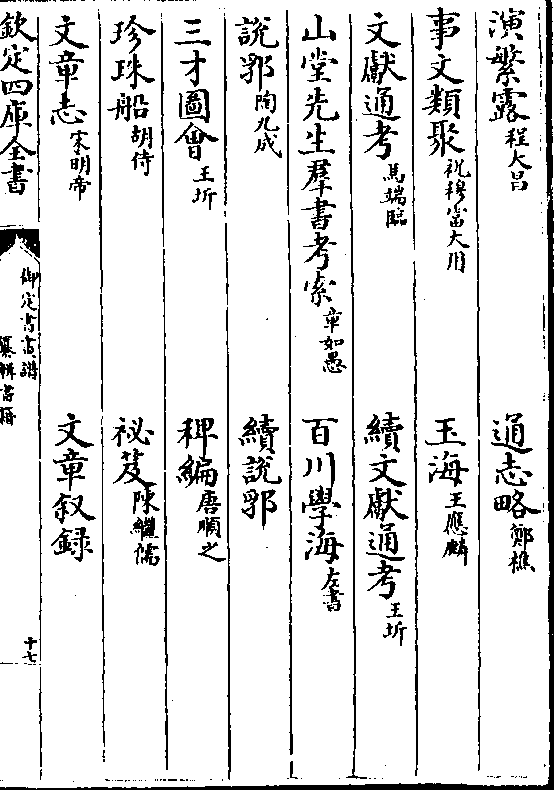 演繁露程大昌　通志略鄭樵
事文類聚祝穆富大用　玉海王應麟
文獻通考馬端臨　續文獻通考王圻
山堂先生羣書考索章如愚　百川學海左書
說郛陶九成　續說郛
三才圖會王圻　稗編唐順之
珍珠船胡侍　祕笈陳繼儒
文章志宋明帝　文章叙録
欽定四庫全書　御定書畫譜　纂輯書籍　十七